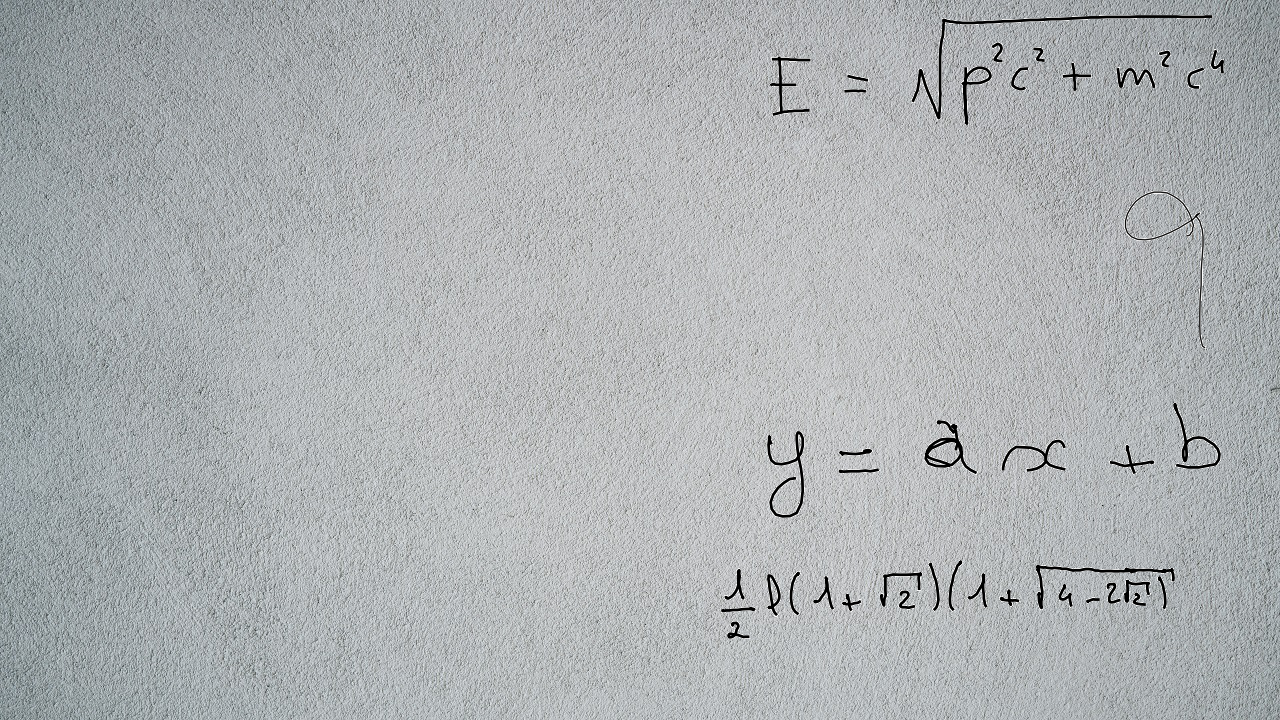 E = √(p²c² + m²c⁴)
q
y = ax + b
1/2 l(1+√2)(1+√(4-2√2))